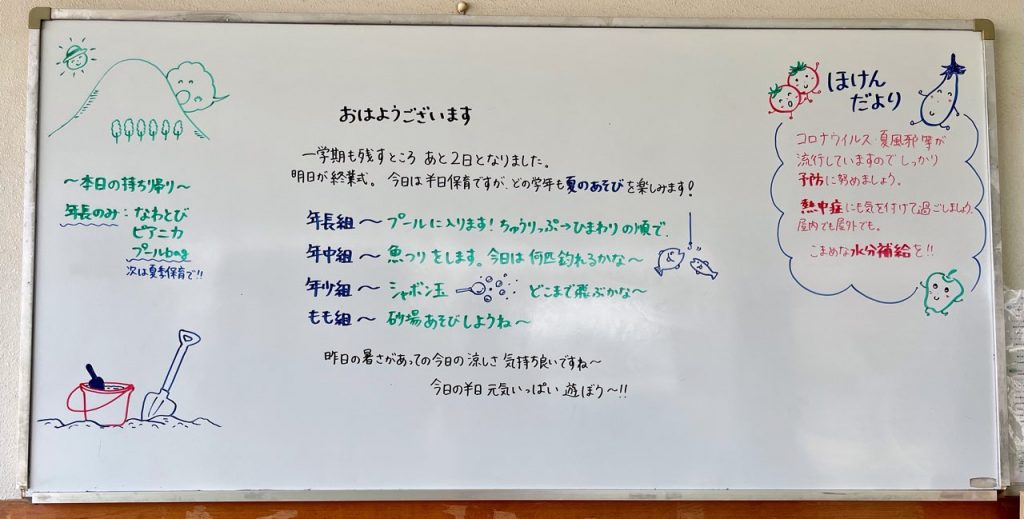 〜本日の持ち帰り〜
年長のみ：なわとび
ピアニカ
プールbag
次は夏季保育で!!
おはようございます
一学期も残すところ あと2日となりました。
明日が終業式。 今日は半日保育ですが、どの学年も夏のあそびを楽しみます!
年長組〜 プールに入ります! ちゅうりっぷ→ひまわりの順で。
年中組〜 魚つりをします。今日は何匹釣れるかな〜
年少組〜 シャボン玉 どこまで飛ぶかな〜
もも組〜 砂場あそびしようね〜
昨日の暑さがあっての今日の涼しさ 気持ち良いですね〜
今日の半日 元気いっぱい 遊ぼう〜!!
ほけん
だより
コロナウイルス・夏風邪等が
流行していますのでしっかり
予防に努めましょう。
熱中症にも気を付けて過ごしましょう。
屋内でも屋外でも。
こまめな水分補給を!!